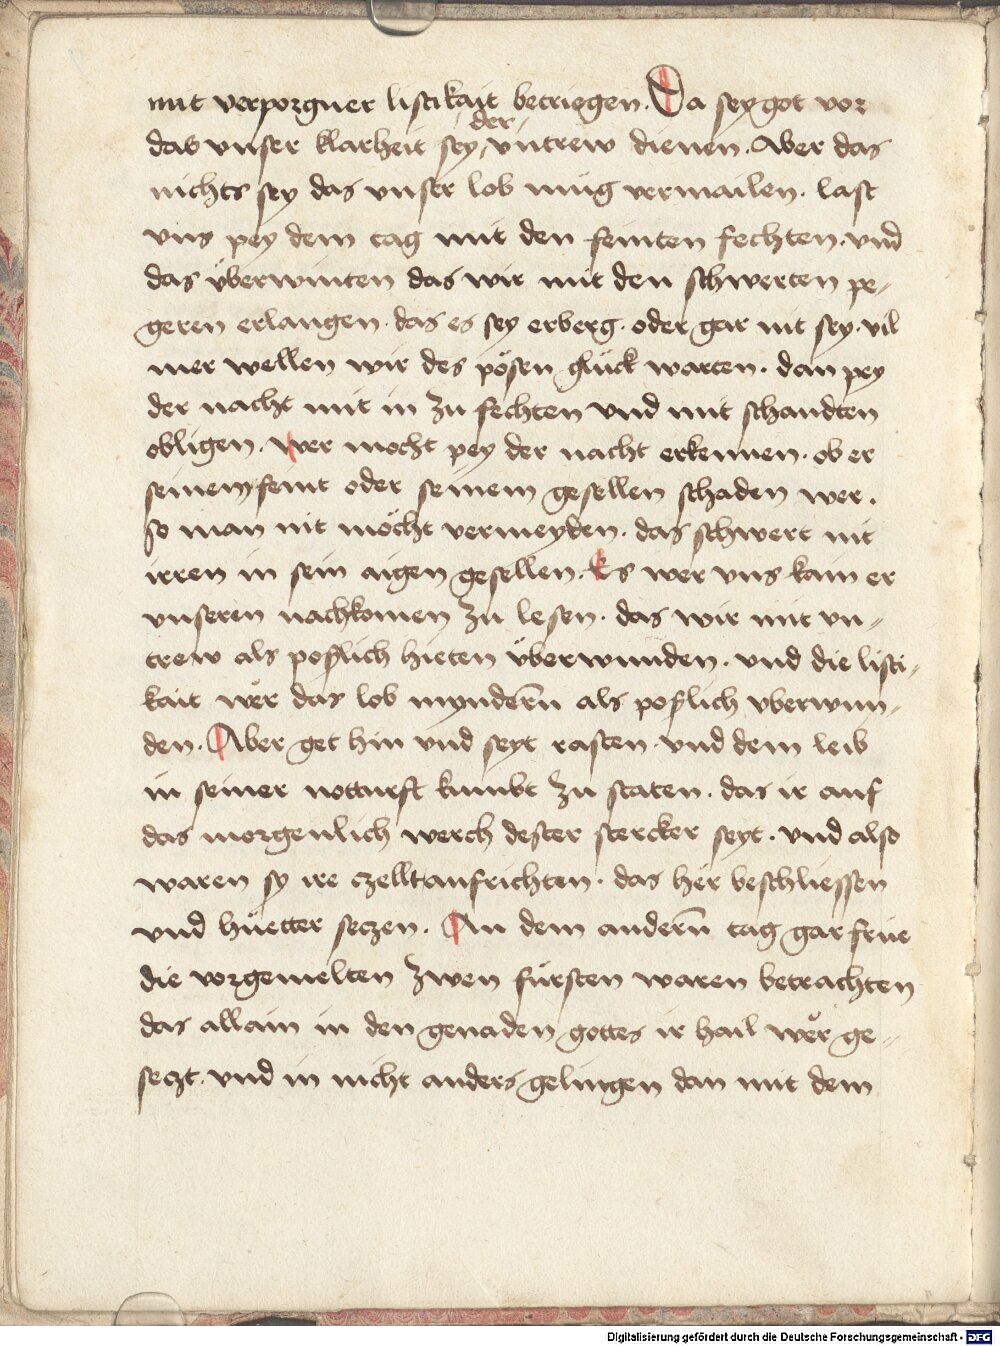 mit verporgner listikait betriegen. Da sey got vor
das vnser klarheit sey der vntrew dienen. Aber das
nichts sey das vnser lob müg vermailen. last
vns pey dem tag mit den feinten fechten. vnd
das überwinten das wir mit den schwerten pe-
geren erlangen. das es sey erberg. oder gar nit sey. vil
mer wellen wir des pösen glück warten. dan pey
der nacht mit in zu fechten vnd mit schandten
obligen. wer mocht pey der nacht erkennen. ob er
seinem feint oder seinem gesellen schaden wer.
so man nit möcht vermeyden. das schwert nit
irren in sein aigen gesellen. Es wer vns kain er
vnseren nachkomen zu lesen. das wir mit vn-
trew als poslich hieten überwunden. vnd die listi-
kait wer das lob mynderñ als poslich vberwun-
den. Aber get hin vnd seyt rasten. vnd dem leib
in seiner notturft kumbt zu staten. das ir auf
das morgenlich werch dester stercker seyt. vnd also
waren sy ire czellt aufrichten. das her beschliessen
vnd hüetter seczen. An dem anderñ tag gar frue
die vorgemelten zwen fürsten waren betrachten
das allain in den genaden gottes ir hail wer ge-
seczt. vnd in nicht anders gelingen dan mit dem
Digitalisierung gefördert durch die Deutsche Forschungsgemeinschaft - DFG